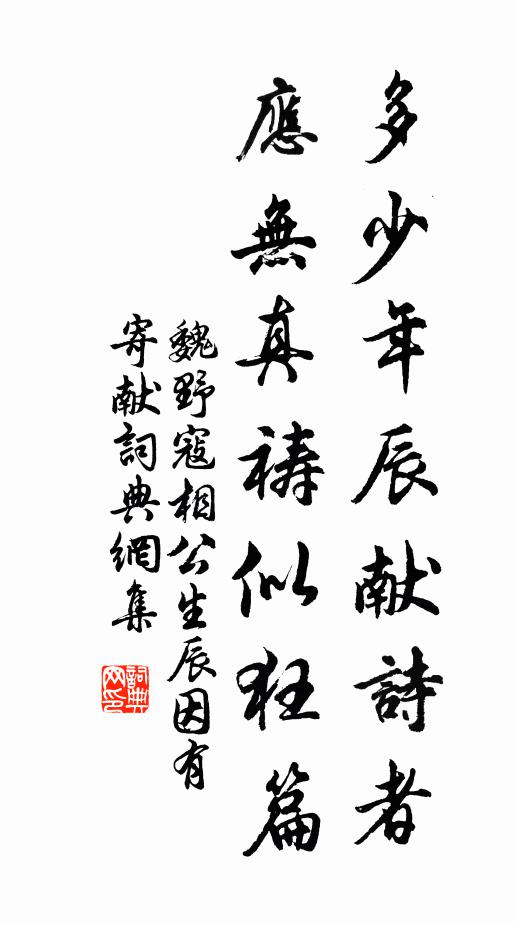 多少年辰献詩者
應無真祷似狂篇
魏野寇相公生辰因有
寄献詞典網集
詞典網印